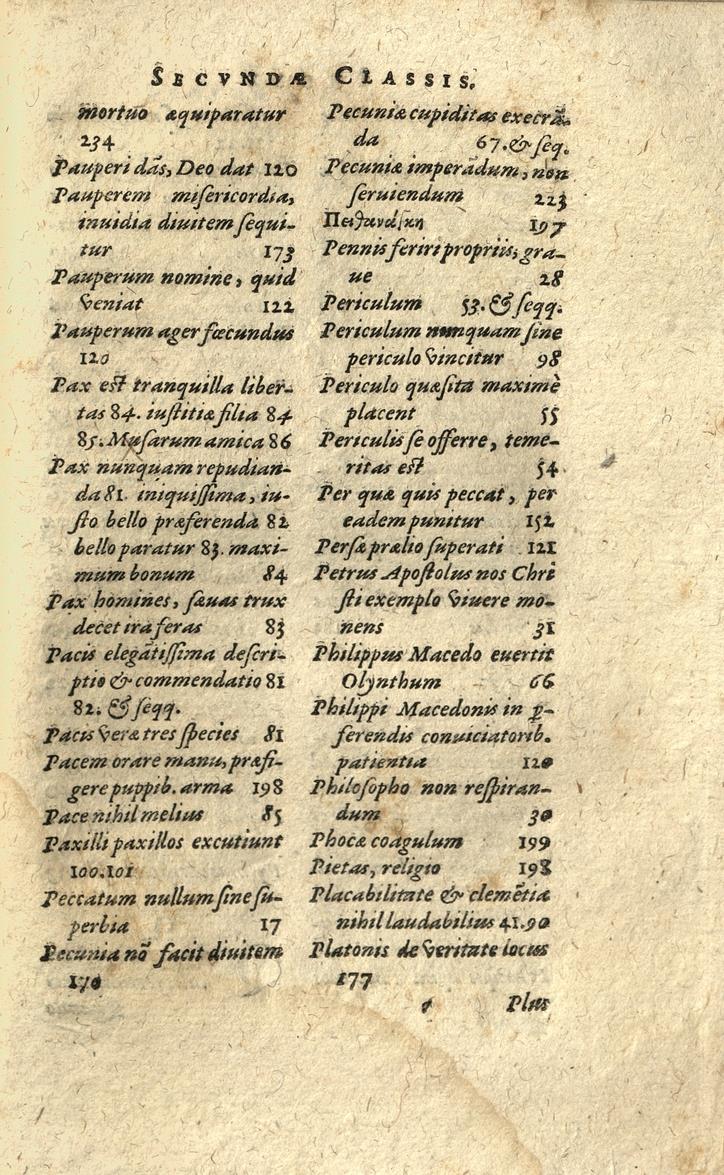 SECVNDÆ CLASSIS.
mortuo æquiparatur
234
Pauperi dãs, Deo dat 120
Pauperem misericordia,
inuidia diuitem sequi-
tur 173
Pauperum nomine, quid
veniat 122
Pauperum ager fœcundus
120
Pax est tranquilla liber-
tas 84. iustitiæ filia 84
85. Musarum amica 86
Pax nunquam repudian-
da 81. iniquissima, iu-
sto bello præferenda 82
bello paratur 83. maxi-
mum bonum 84
Pax homines, sæuas trux
decet ira feras 83
Pacis elegãtissima descri-
ptio & commendatio 81
82. & seqq.
Pacis veræ tres species 81
Pacem orare manu, præfi-
gere puppib. arma 198
Pace nihil melius 85
Paxilli paxillos excutiunt
100.101
Peccatum nullum sine su-
perbia 17
Pecunia nõ facit diuitem
170
Pecuniæ cupiditas execrã-
da 67. & seq.
Pecuniæ imperãdum, non
seruiendum 223
197
Pennis feriri propriis, gra-
ue 28
Periculum 53. & seqq.
Periculum nunquam sine
periculo vincitur 98
Periculo quæsita maximè
placent 55
Periculis se offerre, teme-
ritas est 54
Per quæ quis peccat, per
eadem punitur 152
Persæ prælio superati 121
Petrus Apostolus nos Chri
sti exemplo viuere mo-
nens 31
Philippus Macedo euertit
Olynthum 66
Philippi Macedonis in ꝑ-
ferendis conuiciatorib.
patientia 120
Philosopho non respiran-
dum 30
Phocæ coagulum 199
Pietas, religio 198
Placabilitate & clemẽtia
nihil laudabilius 41.90
Platonis de veritate locus
177
Plus